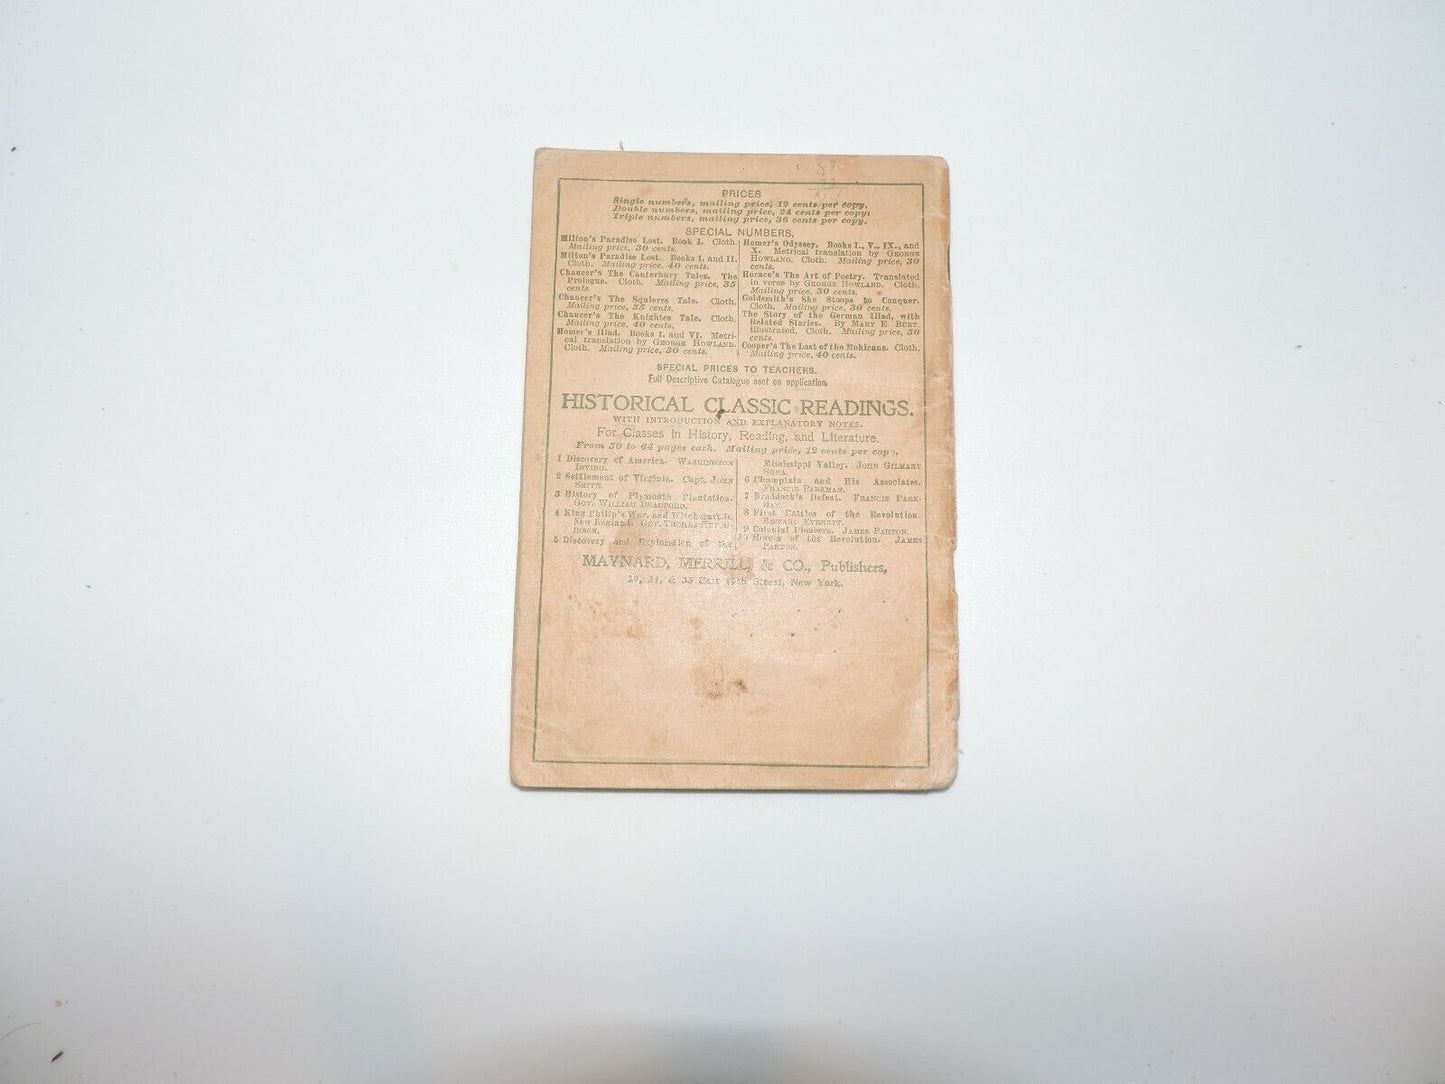 PRICES
Single numbers, mailing price, 12 cents per copy.
Double numbers, mailing price, 24 cents per copy.
Triple numbers, mailing price, 36 cents per copy.
SPECIAL NUMBERS.
Milton's Paradise Lost. Book I. Cloth.
Mailing price, 30 cents.
Milton's Paradise Lost. Books I. and II.
Cloth. Mailing price, 40 cents.
Chaucer's The Canterbury Tales. The
Prologue. Cloth. Mailing price, 35
cents.
Chaucer's The Squieres Tale. Cloth.
Mailing price, 35 cents.
Chaucer's The Knightes Tale. Cloth.
Mailing price, 40 cents.
Homer's Iliad. Books I. and VI. Metri-
cal translation by GEORGE HOWLAND.
Cloth. Mailing price, 30 cents.
Homer's Odyssey. Books I., V., IX., and
X. Metrical translation by GEORGE
HOWLAND. Cloth. Mailing price, 30
cents.
Horace's The Art of Poetry. Translated
in verse by GEORGE HOWLAND. Cloth.
Mailing price, 30 cents.
Goldsmith's She Stoops to Conquer.
Cloth. Mailing price, 30 cents.
The Story of the German Iliad, with
Related Stories. By MARY E. BURT.
Illustrated. Cloth. Mailing price, 50
cents.
Cooper's The Last of the Mohicans. Cloth.
Mailing price, 40 cents.
SPECIAL PRICES TO TEACHERS.
Full Descriptive Catalogue sent on application.
HISTORICAL CLASSIC READINGS.
WITH INTRODUCTION AND EXPLANATORY NOTES.
For Classes in History, Reading, and Literature.
From 50 to 64 pages each. Mailing price, 12 cents per copy.
1 Discovery of America. WASHINGTON
IRVING.
2 Settlement of Virginia. CAPT. JOHN
SMITH.
3 History of Plymouth Plantation.
GOV. WILLIAM BRADFORD.
4 King Philip's War, and Witchcraft in
New England. GOV. THOMAS HUTCH-
INSON.
5 Discovery and Exploration of the
Mississippi Valley. JOHN GILMARY
SHEA.
6 Champlain and His Associates.
FRANCIS PARKMAN.
7 Braddock's Defeat. FRANCIS PARK-
MAN.
8 First Battles of the Revolution.
EDWARD EVERETT.
9 Colonial Pioneers. JAMES PARTON.
10 Heroes of the Revolution. JAMES
PARTON.
MAYNARD, MERRILL, & CO., Publishers,
29, 31, & 33 East 19th Street, New York.